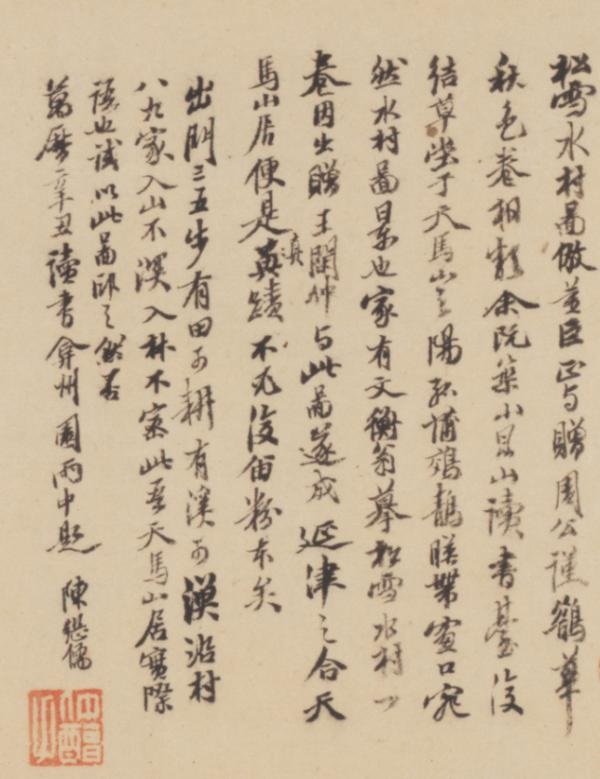 松雪水村圖倣董巨正与贈周公謹鵲華
秋色卷相類余既築小崑山讀書臺復
結草堂于天馬山之陽映帶窗口宛
然水村圖景也家有文衡翁摹松雪水村一
卷因出贈王閏仲与此圖遂成延津之合天
馬山居便是真蹟不必復留粉本矣
出門三五步有田可耕有溪可漁沿村
八九家入山不深入林不密此吾天馬山居實際
語也試以此圖印之然否
萬曆辛丑讀書弇州園雨中題 陳繼儒